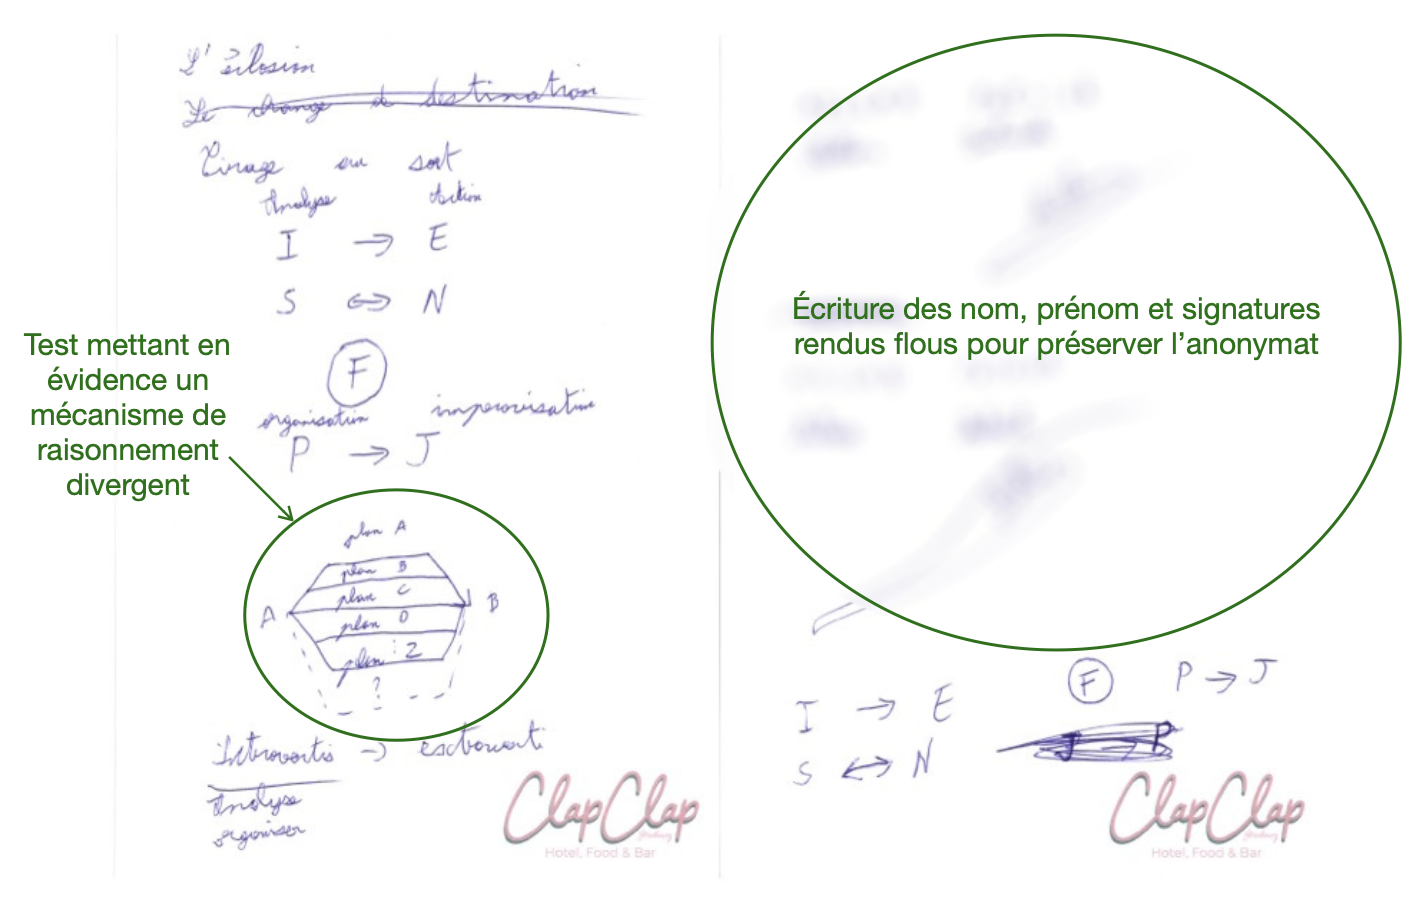 L'
Le change de destination
Tirage au sort
Analyse Action
I → E
S ↔ N
F
organisation improvisation
P → J
Test mettant en
évidence un
mécanisme de
raisonnement
divergent
plan A
plan B
plan C
A B
plan D
plan : Z
?
Introvertis → extraverti
Analyse
organiser
ClapClap
Hotel, Food & Bar
Écriture des nom, prénom et signatures
rendus flous pour préserver l'anonymat
I → E F P → J
S ↔ N J → P
ClapClap
Hotel, Food & Bar